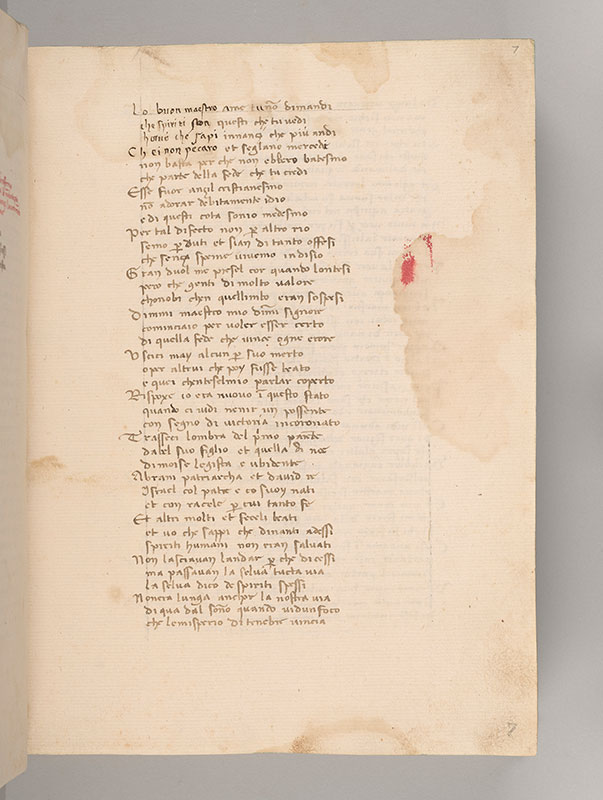 7
Lo buon maestro ame tu nō dimandi
che spiriti son questi che tu vedi
hor ue che sapi innanzi che più andi
Ch ei non pecaro et seglano mercede
non basta per che non ebbero batesmo
che parte della fede che tu credi
Esse fuor anzil cristianesmo
nō adorar debitamente idio
e di questi cota sonio medesmo
Per tal difecto non ꝑ altro rio
semo ꝑduti et sian di tanto offesi
che senza speme uiuemo indisio
Gran duol me presel cor quando lontesi
pero che genti di molto valore
chonobi chen quellimbo eran sospesi
Dimmi maestro mio dīmi signore
cominciaio per voler esser certo
di quella fede che uince ogne erore
Vscici may alcun ꝑ suo merto
oper altrui che poy fusse beato
e quei chenteselmio parlar coperto
Rispoxe io era nuouo ī questo stato
quando ci vidi uenir un possente
con segno di uictoria incoronato
Trasseci lombra del pͥmo parēte
dabel suo figlio et quella di noe
di moise legista e ubidente
Abram patriarcha et david re
Israel col patre e co suoy nati
et con racele ꝑ cui tanto fe
Et altri molti et feceli beati
et uo che sappi che dinanti adessi
spiriti humani non eran saluati
Non lasciauan landar ꝑ che dicessi
ma passauan la selua tucta uia
la selua dico de spiriti spessi
Nonera lunga anchor la nostra uia
di qua dal sono quando uidunfoco
che lemisperio di tenebre uincia
7